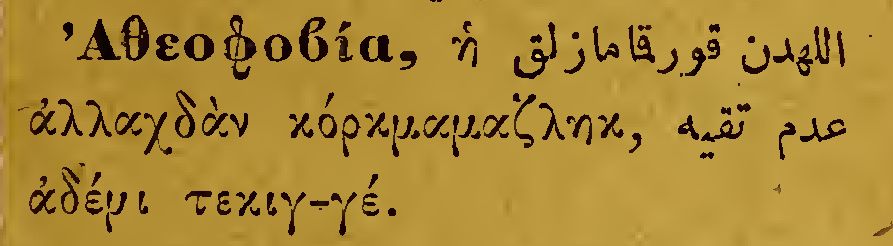 Ἀθεοφοϐία, ἡ اللهدن قورقامازلق
ἀλλαχδὰν κόρκμαμαζληκ, عدم تقيه
ἀδέμι τεκιγ-γέ.